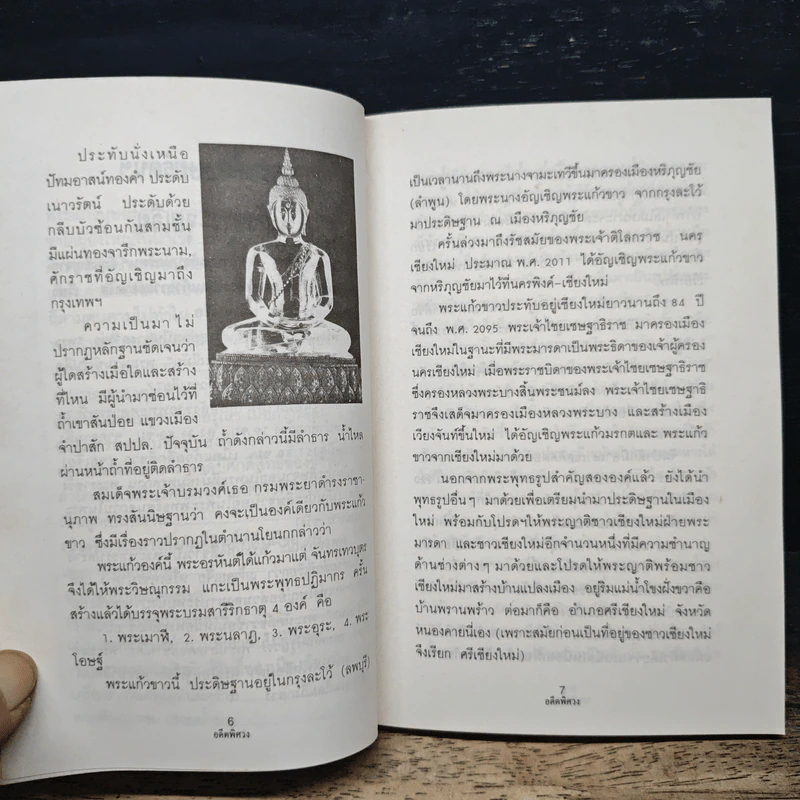 ประทับนั่งเหนือ
ปัทมอาสน์ทองคำ ประดับ
เนาวรัตน์ ประดับด้วย
กลีบบัวซ้อนกันสามชั้น
มีแผ่นทองจารึกพระนาม,
ศักราชที่อัญเชิญมาถึง
กรุงเทพฯ
ความเป็นมา ไม่
ปรากฏหลักฐานชัดเจนว่า
ผู้ใดสร้างเมื่อใดและสร้าง
ที่ไหน มีผู้นำมาซ่อนไว้ที่
ถ้ำเขาสันป่อย แขวงเมือง
จำปาสัก สปปล. ปัจจุบัน ถ้ำดังกล่าวนี้มีลำธาร น้ำไหล
ผ่านหน้าถ้ำที่อยู่ติดลำธาร
สมเด็จพระเจ้าบรมวงศ์เธอ กรมพระยาดำรงราชา-
นุภาพ ทรงสันนิษฐานว่า คงจะเป็นองค์เดียวกับพระแก้ว
ขาว ซึ่งมีเรื่องราวปรากฏในตำนานโยนกกล่าวว่า
พระแก้วองค์นี้ พระอรหันต์ได้แก้วมาแต่ จันทรเทวบุตร
จึงได้ให้พระวิษณุกรรม แกะเป็นพระพุทธปฏิมากร ครั้น
สร้างแล้วได้บรรจุพระบรมสารีริกธาตุ 4 องค์ คือ
1. พระเมาฬี, 2. พระนลาฏ, 3. พระอุระ, 4. พระ
โอษฐ์
พระแก้วขาวนี้ ประดิษฐานอยู่ในกรุงละโว้ (ลพบุรี)
6
อดีตพิศวง
เป็นเวลานานถึงพระนางจามะเทวีขึ้นมาครองเมืองหริภุญชัย
(ลำพูน) โดยพระนางอัญเชิญพระแก้วขาว จากกรุงละโว้
มาประดิษฐาน ณ เมืองหริภุญชัย
ครั้นล่วงมาถึงรัชสมัยของพระเจ้าติโลกราช นคร
เชียงใหม่ ประมาณ พ.ศ. 2011 ได้อัญเชิญพระแก้วขาว
จากหริภุญชัยมาไว้ที่นครพิงค์-เชียงใหม่
พระแก้วขาวประทับอยู่เชียงใหม่ยาวนานถึง 84 ปี
จนถึง พ.ศ. 2095 พระเจ้าไชยเชษฐาธิราช มาครองเมือง
เชียงใหม่ในฐานะที่มีพระมารดาเป็นพระธิดาของเจ้าผู้ครอง
นครเชียงใหม่ เมื่อพระราชบิดาของพระเจ้าไชยเชษฐาธิราช
ซึ่งครองหลวงพระบางสิ้นพระชนม์ลง พระเจ้าไชยเชษฐาธิ
ราชจึงเสด็จมาครองเมืองหลวงพระบาง และสร้างเมือง
เวียงจันท์ขึ้นใหม่ ได้อัญเชิญพระแก้วมรกตและ พระแก้ว
ขาวจากเชียงใหม่มาด้วย
นอกจากพระพุทธรูปสำคัญสององค์แล้ว ยังได้นำ
พุทธรูปอื่นๆ มาด้วยเพื่อเตรียมนำมาประดิษฐานในเมือง
ใหม่ พร้อมกับโปรดฯให้พระญาติชาวเชียงใหม่ฝ่ายพระ
มารดา และชาวเชียงใหม่อีกจำนวนหนึ่งที่มีความชำนาญ
ด้านช่างต่างๆ มาด้วยและโปรดให้พระญาติพร้อมชาว
เชียงใหม่มาสร้างบ้านแปลงเมือง อยู่ริมแม่น้ำโขงฝั่งขวาคือ
บ้านพรานพร้าว ต่อมาก็คือ อำเภอศรีเชียงใหม่ จังหวัด
หนองคายนี่เอง (เพราะสมัยก่อนเป็นที่อยู่ของชาวเชียงใหม่
จึงเรียก ศรีเชียงใหม่)
7
อดีตพิศวง